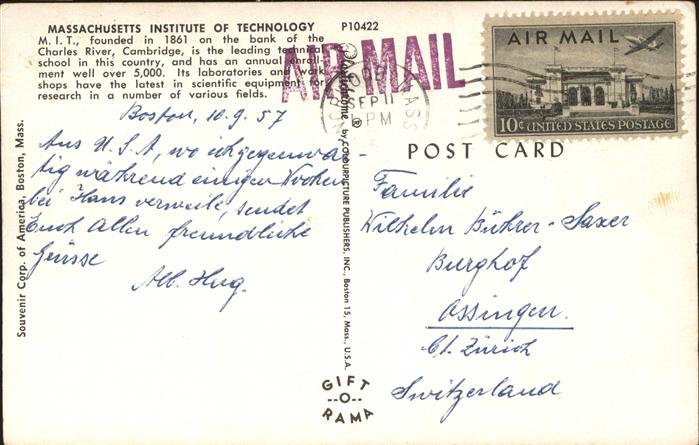 MASSACHUSETTS INSTITUTE OF TECHNOLOGY P10422
M. I. T., founded in 1861 on the bank of the
Charles River, Cambridge, is the leading technical
school in this country, and has an annual enroll-
ment well over 5,000. Its laboratories and work
shops have the latest in scientific equipment for
research in a number of various fields.
AIR MAIL
SEP 11
PM
MASS
AIR MAIL
10¢ UNITED STATES POSTAGE
POST CARD
Boston, 10.9.57
Aus U.S.A, wo ich gegenwär-
tig während einigen Wochen
bei Hans verweile, sendet
Euch Allen freundliche
Grüsse
Alb. Hug.
Familie
Wilhelm Bührer-Saxer
Burghof
Ossingen.
Ct. Zürich
Switzerland
Souvenir Corp. of America, Boston, Mass.
Plastichrome ® by COLOURPICTURE PUBLISHERS, INC., Boston 15, Mass., U.S.A.
GIFT
--O--
RAMA